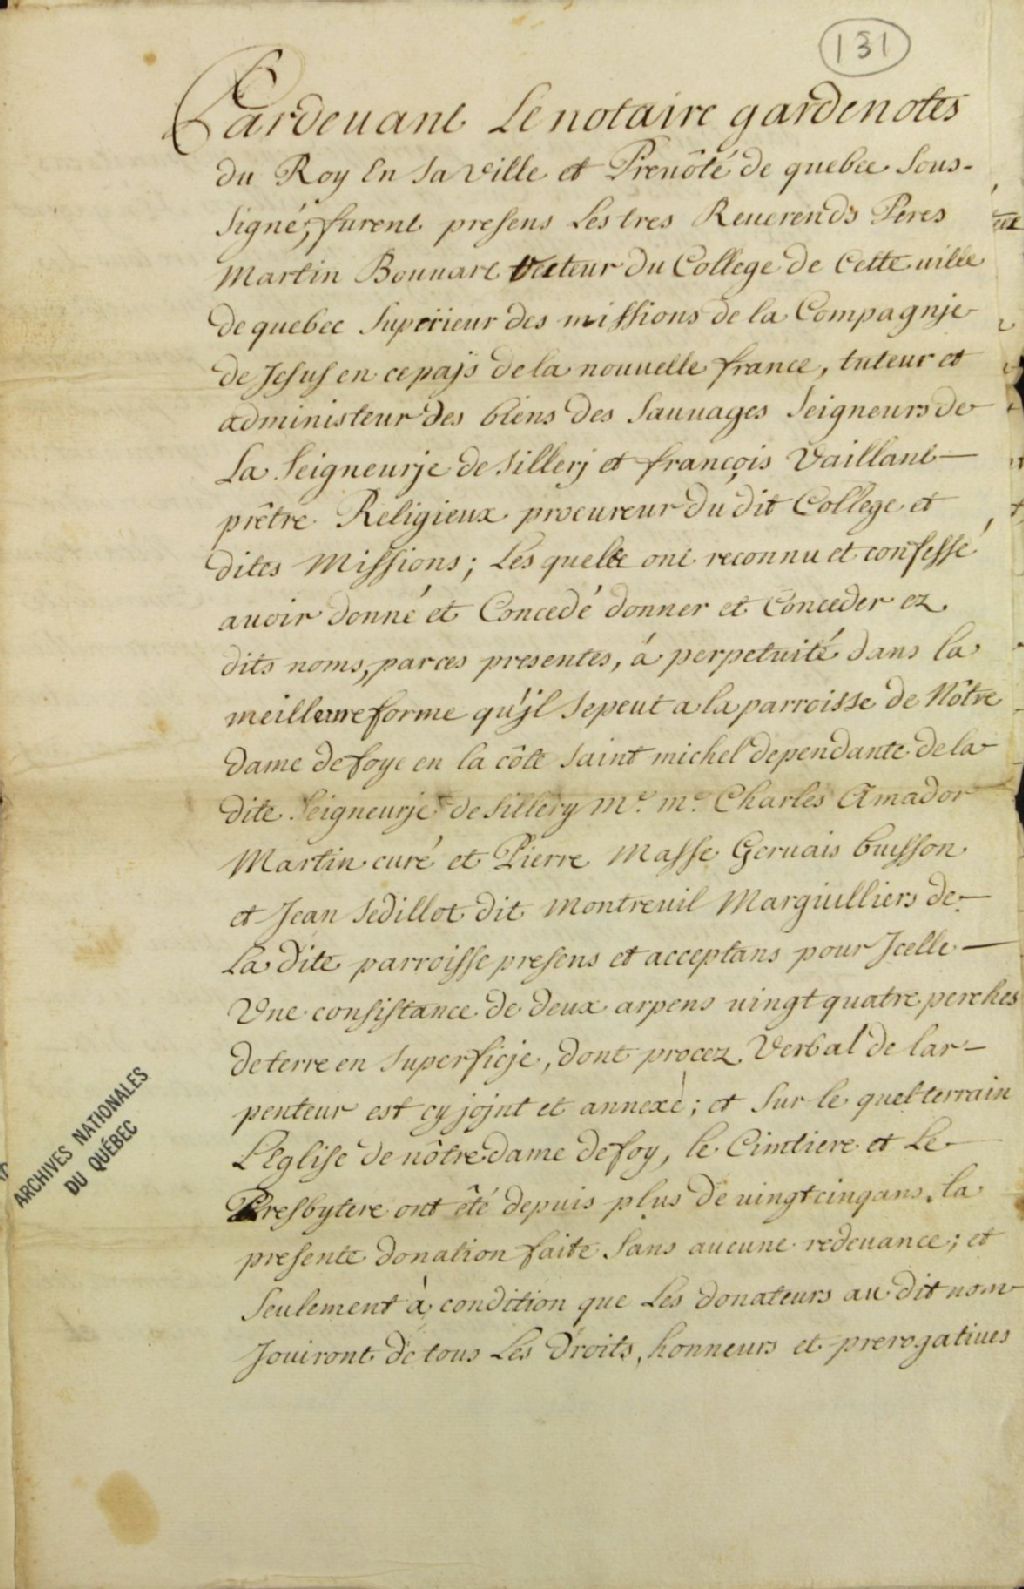 131
Pardevant Le notaire gardenotes
du Roy En sa Ville et Prevôté de quebec sous-
signé, furent presens Les tres Reuerends Peres
Martin Bouuart Recteur du College de Cette uille
de quebec superieur des missions de la Compagnje
de Jesus en ce paÿs de la nouuelle france, tuteur et
administeur des biens des Sauuages Seigneurs de
La Seigneurje de sillerj et françois Vaillant
prêtre Religieux procureur du dit College et
dites Missions; Les quelle ont reconnu et confessé
auoir donné et Concedé donner et Conceder ez
dits noms, par ces presentes, á perpetuité dans la
meilleure forme qu'jl se peut a la parroisse de Nôtre
dame de foye en la côte saint michel dependante de la
dite Seigneurje de sillery Me. me. Charles Amador
Martin curé et Pierre Masse Geruais buisson
et Jean Sedillot dit Montreuil Margiulliers de
La dite parroisse presens et acceptans pour Jcelle
Une consistance de deux arpens uingt quatre perches
de terre en superficje, dont procez Verbal de lar-
penteur est cy jojnt et annexé; et sur le quel terrain
L'Eglise de nôtre dame de foy, le Cimtiere et Le
Presbytere ont êté depuis plus de uingt cinq ans. la
presente donation faite sans aucune redeuance; et
seulement à condition que Les donateurs au dit nom
Jouiront de tous Les droits, honneurs et prerogatiues
ARCHIVES NATIONALES
DU QUÉBEC